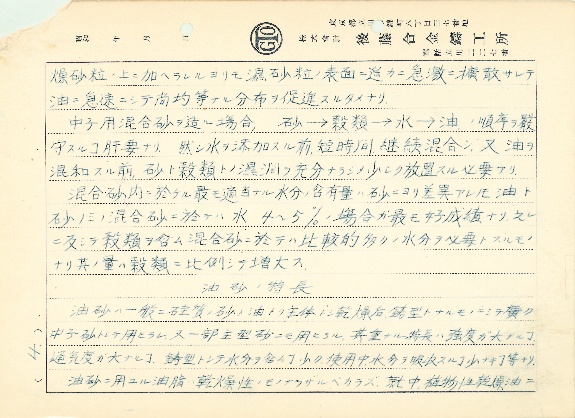 昭和 年 月 日
GTO
株式会社 後藤合金鑄工所
燥砂粒ノ上ニ加ヘラレルヨリモ濕砂粒ノ表面ニ遙カニ急激ニ擴散サレテ
油ニ急速ニシテ尚均等ナル分布ヲ促進スルタメナリ
中子用混合砂ヲ造ル場合 砂→穀類→水→油ノ順序ヲ嚴
守スル事肝要ナリ 然シ水ヲ添加スル前短時間継続混合シ、又油ヲ
混和スル前、砂ト穀類トノ濕潤ヲ充分ナラシメ少シク放置スル必要ナリ
混合砂内ニ於ケル最モ適当ナル水分ノ含有量ハ砂ニヨリ差異アレモ油ト
砂ノミノ混合砂ニ於テハ水 4~5%ノ場合ガ最モ好成績ナリ、之レ
ニ反シテ穀類ヲ含ム混合砂ニ於テハ比較的多クノ水分ヲ必要トスルモノ
ナリ其ノ量ハ穀類ニ比例シテ増大ス
油砂ノ特長
油砂ハ一般ニ硅質ノ砂ト油トヲ主体トシ乾燥后鋳型トナルモノニシテ
中子砂トシテ用ヒラル、又一部主型砂ニモ用ヒラル、其重ナル特長ハ強度ガ大ナル事
通気度ガ大ナル事、鋳型トシテ水分ヲ含ム事少ク使用中水分ヲ吸収スル事少ナキ事等ナリ
油砂ニ用ユル油脂ハ乾燥性ノモノナラザルベカラズ、就中植物性乾燥油ニ
(4.)